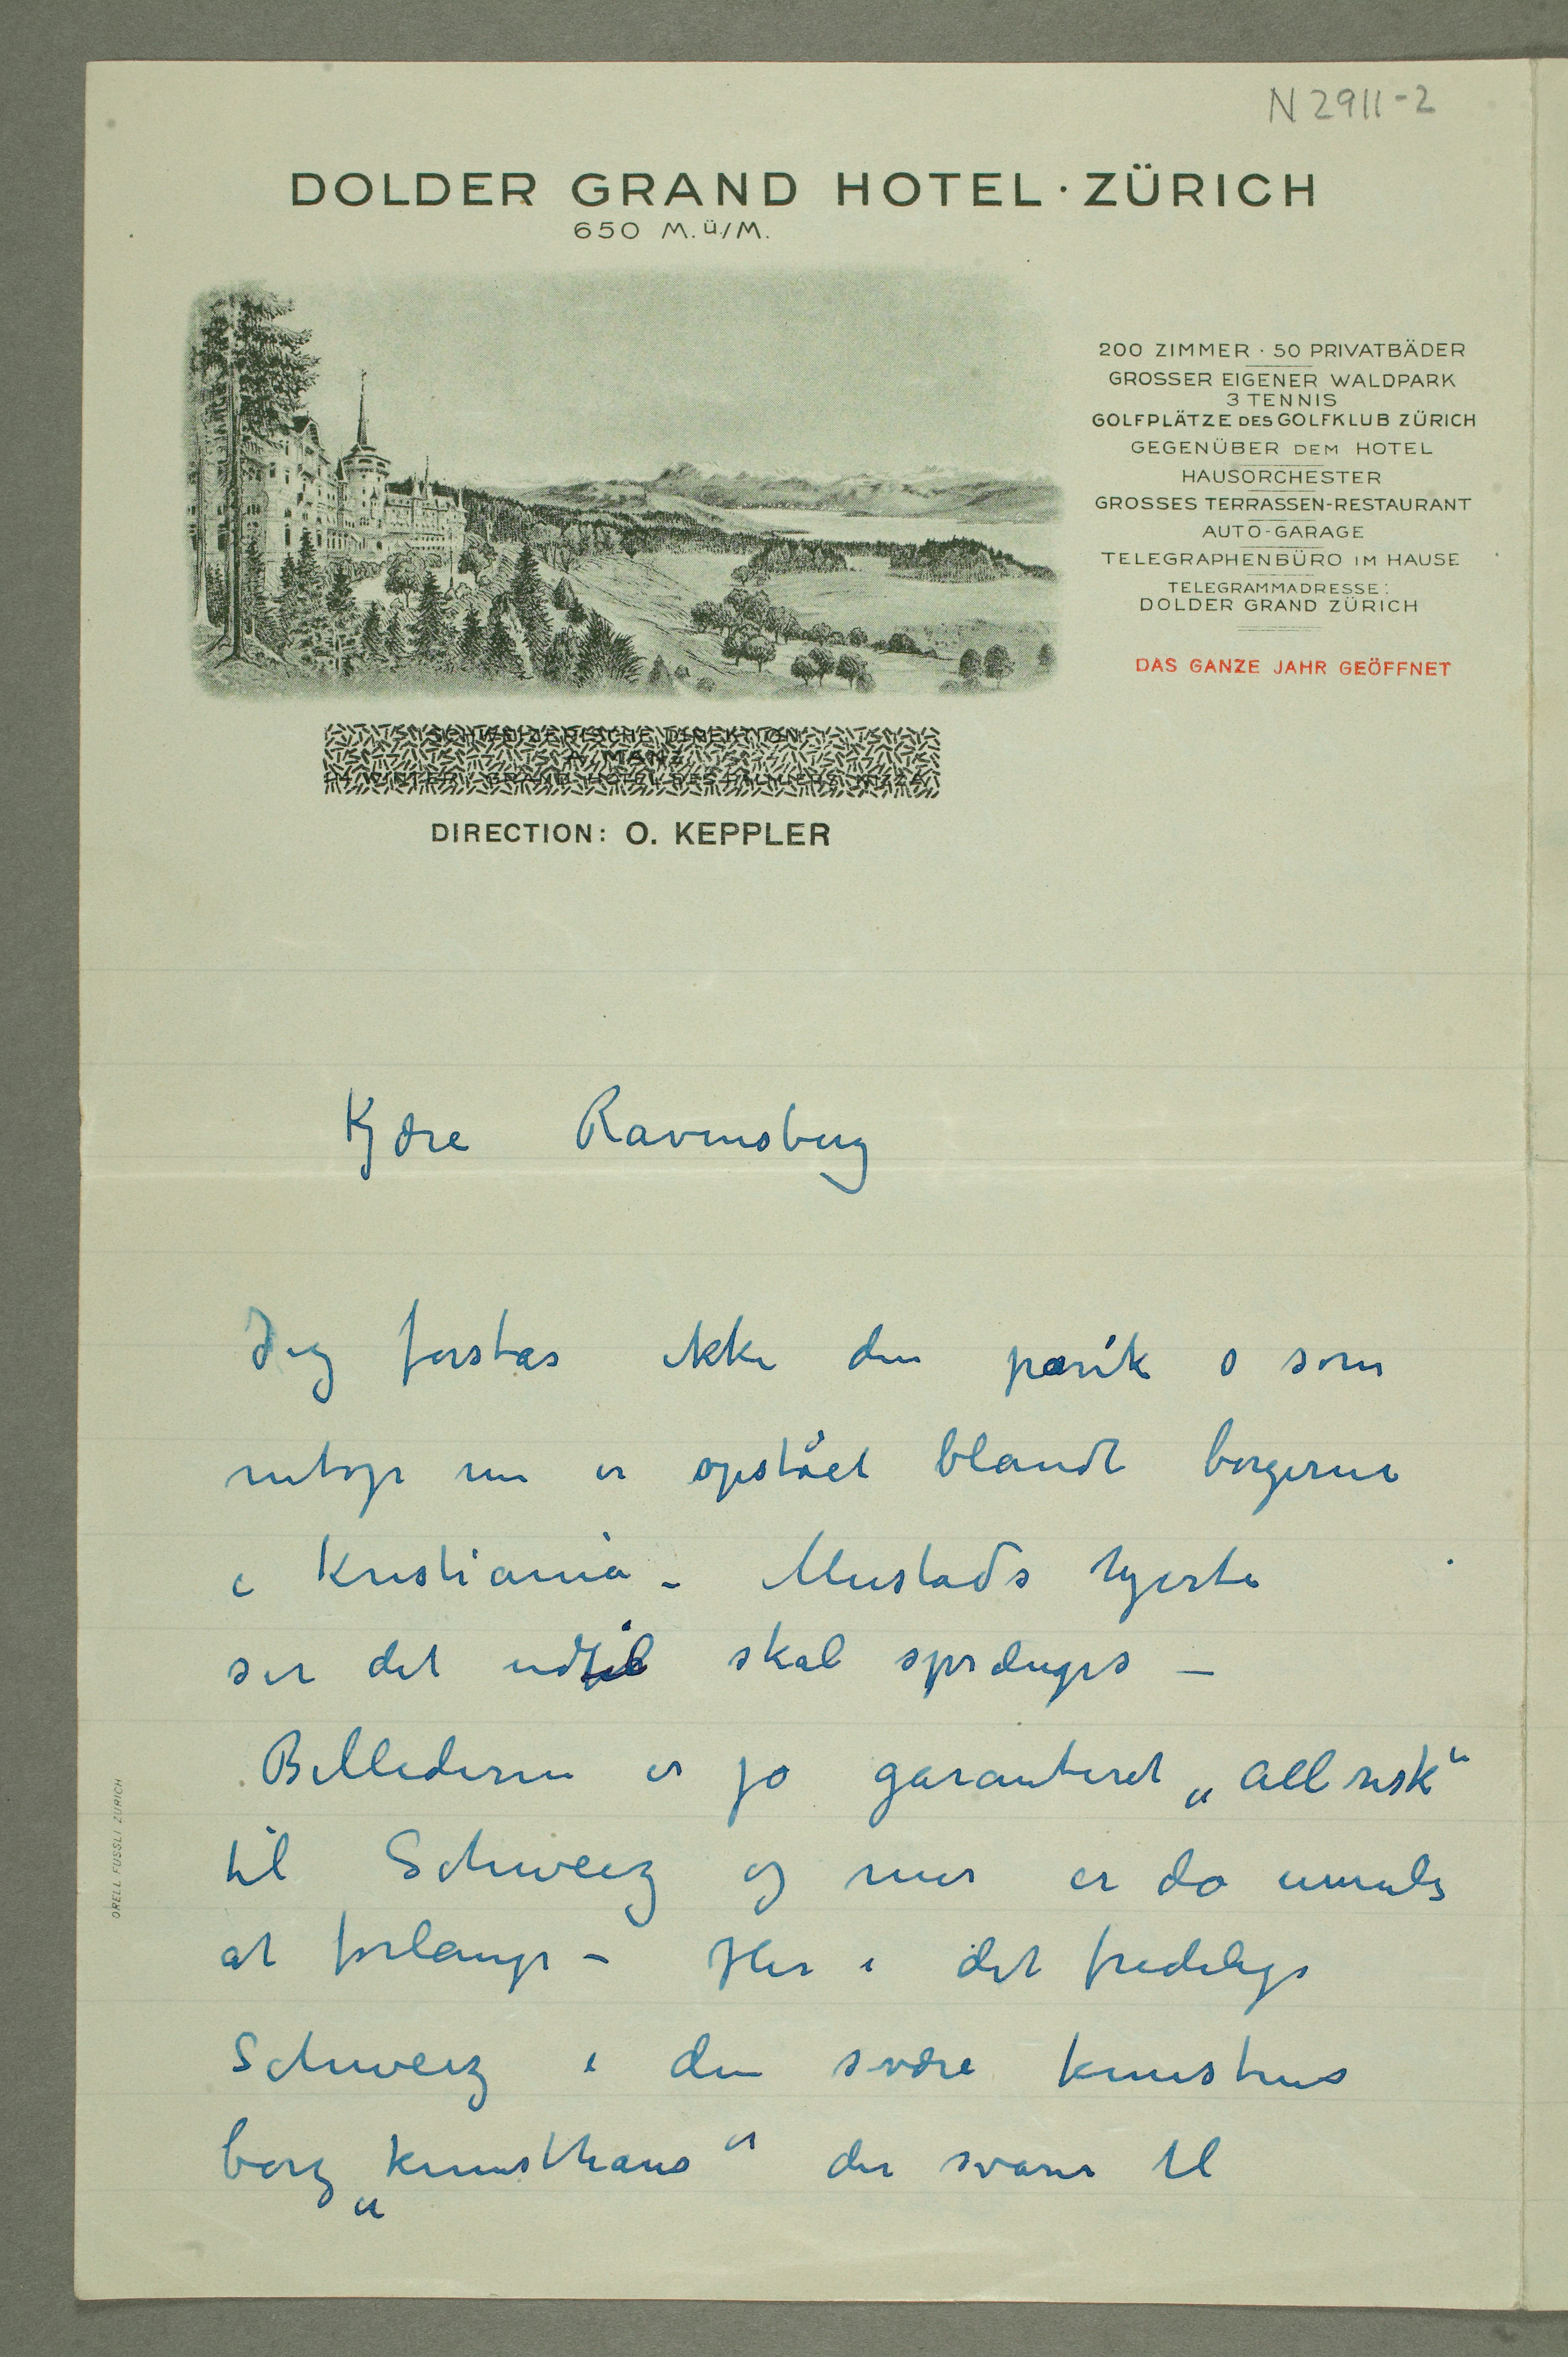 N 2911-2
DOLDER GRAND HOTEL · ZÜRICH
650 M. ü/M.
200 ZIMMER · 50 PRIVATBÄDER
GROSSER EIGENER WALDPARK
3 TENNIS
GOLFPLÄTZE DES GOLFKLUB ZÜRICH
GEGENÜBER DEM HOTEL
HAUSORCHESTER
GROSSES TERRASSEN-RESTAURANT
AUTO-GARAGE
TELEGRAPHENBÜRO IM HAUSE
TELEGRAMMADRESSE:
DOLDER GRAND ZÜRICH
DAS GANZE JAHR GEÖFFNET
SCHWEIZERISCHE DIREKTION
A. MANZ
DIRECTION: O. KEPPLER
Kjære Ravensberg
Jeg forstås ikke den panik som
netop nu er opstået blandt borgerne
i Kristiania – Mustads hjerte
ser det udtil skal sprænges –
Billederne er jo garanteret „all risk“
til Schweiz og mer er da umulig
at forlange – Her i det fredelige
Schweiz i den svære kunsthus
borg „kunsthaus“ der svarer til
ORELL FÜSSLI ZÜRICH